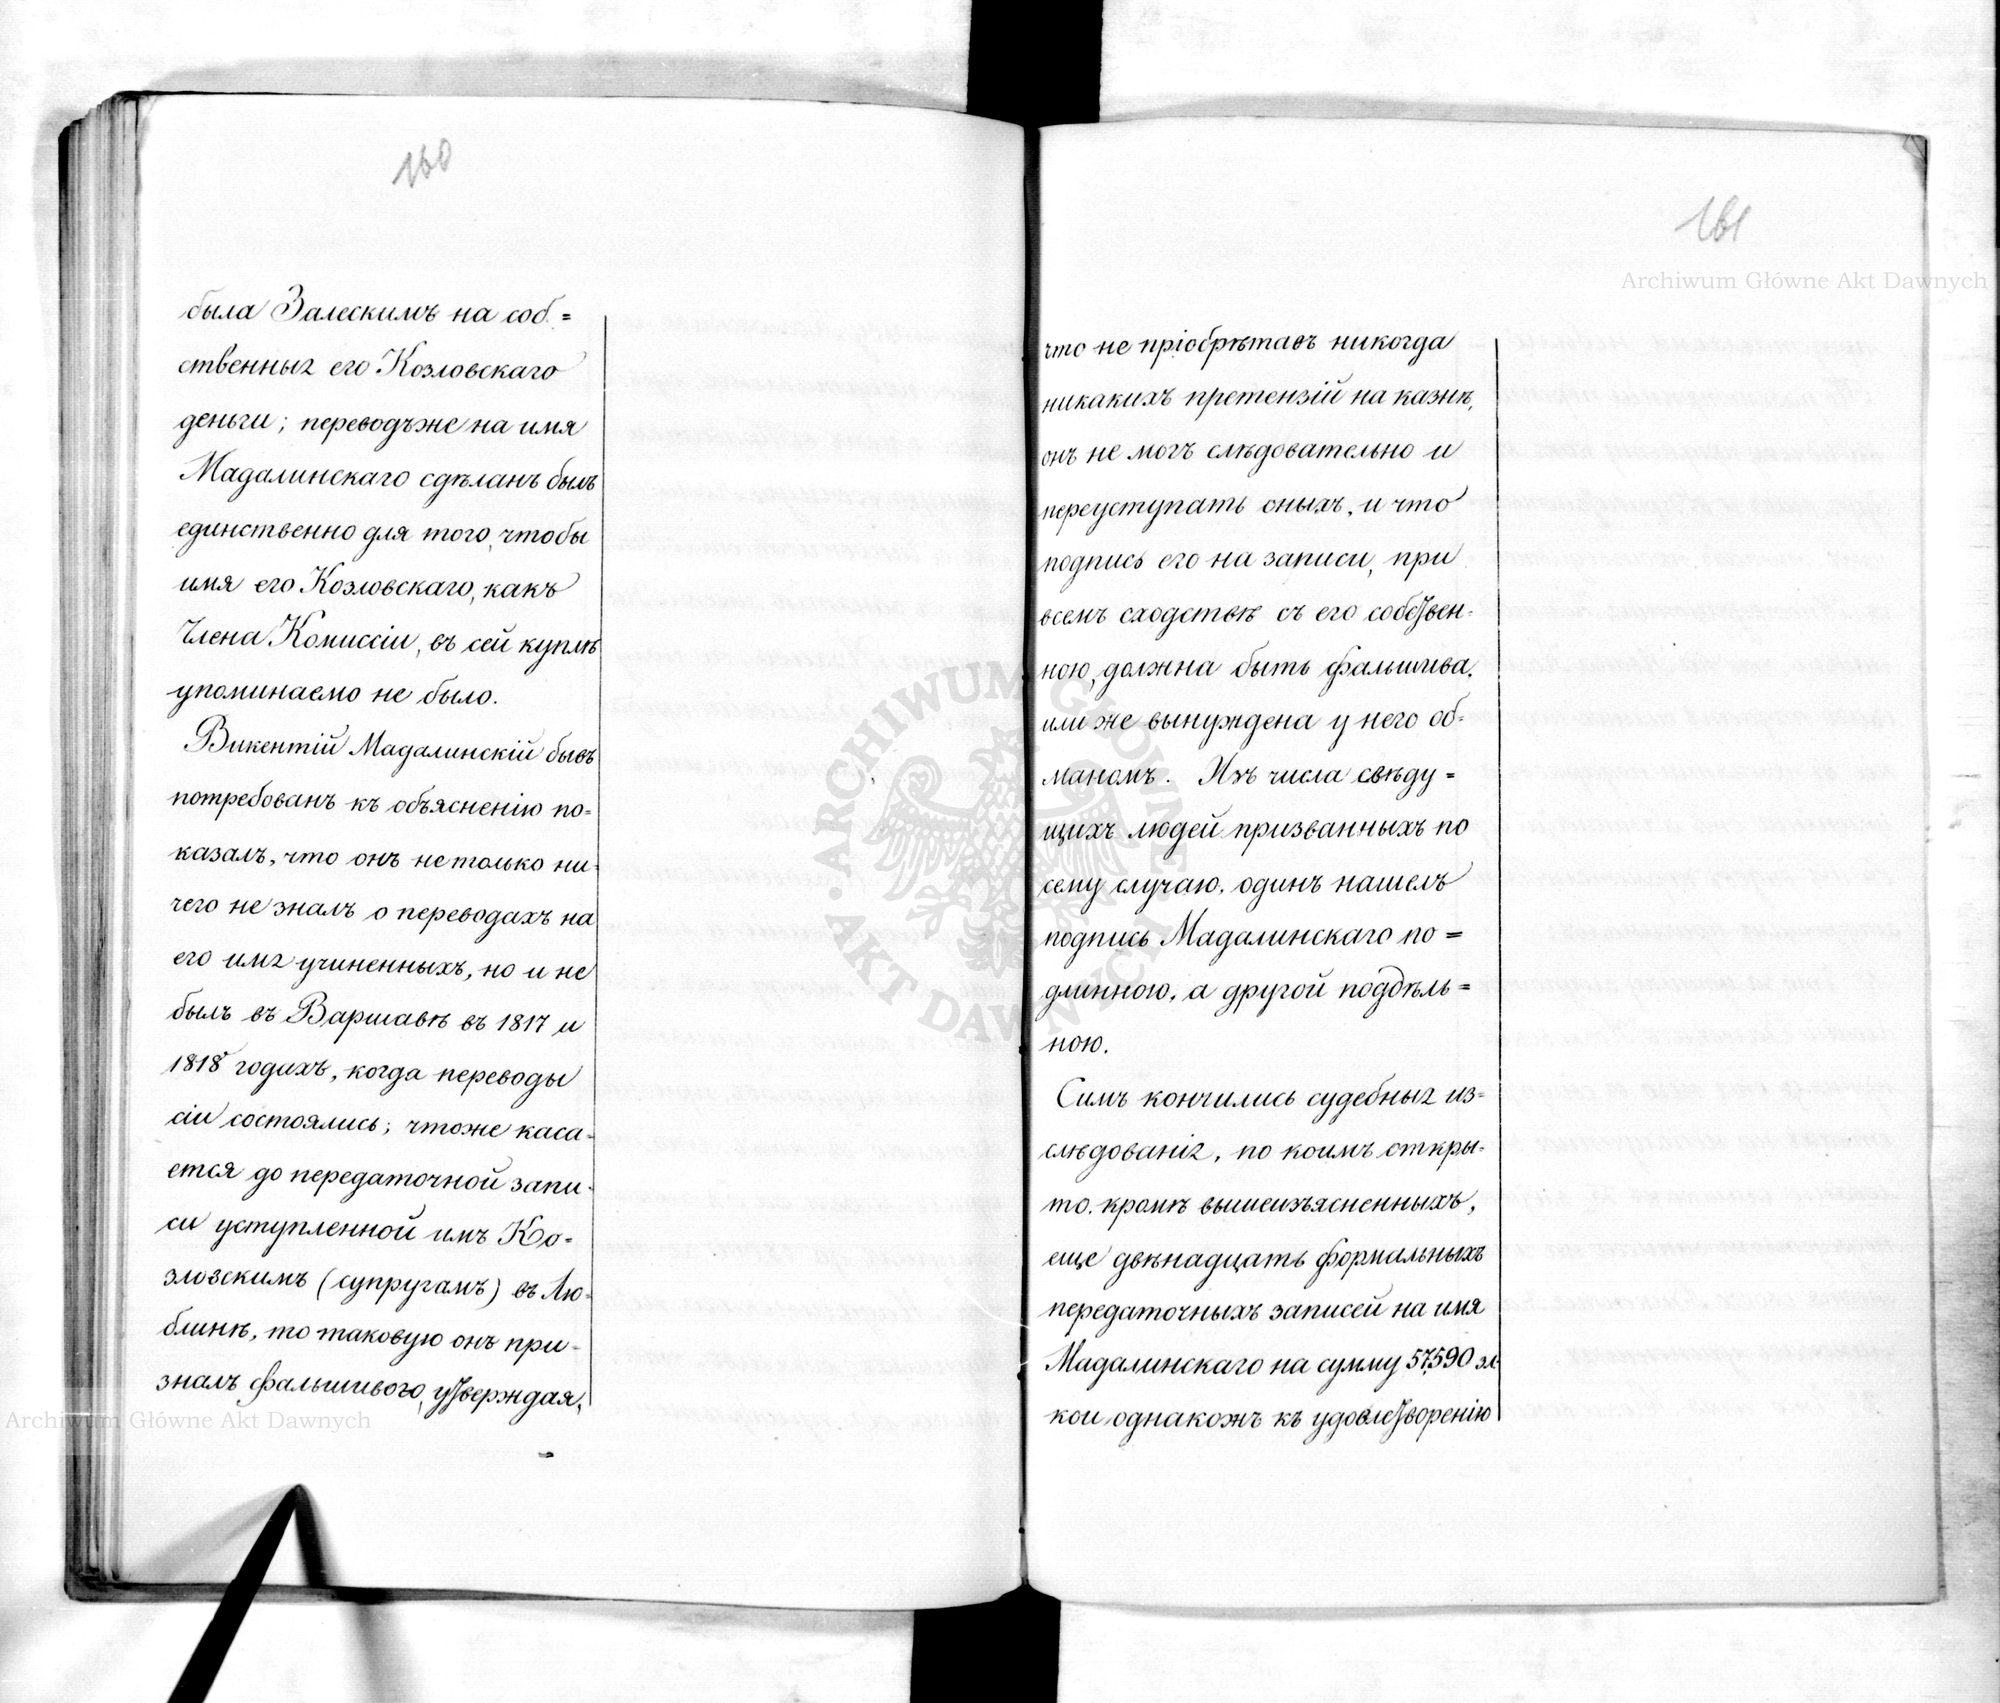 160
была Залескимъ на соб=
ственныя его Козловскаго
деньги; переводъже на имя
Мадалинскаго сдѣланъ былъ
единственно для того, чтобы
имя его Козловскаго, какъ
Члена Комиссіи, въ сей куплѣ
упоминаемо не было.
Викентій Мадалинскій бывъ
потребованъ къ объясненію по=
казалъ, что онъ не только ни=
чего не зналъ о переводахъ на
его имя учиненныхъ, но и не
былъ въ Варшавѣ въ 1817 и
1818 годахъ, когда переводы
сіи состоялись; чтоже каса=
ется до передаточной запи=
си уступленной имъ Ко=
зловскимъ (супругамъ) въ Лю=
блинѣ, то таковую онъ при=
зналъ фальшивою, утверждая,
161
что не пріобрѣтавъ никогда
никакихъ претензій на казнѣ,
онъ не могъ слѣдовательно и
переуступать оныхъ, и что
подпись его на записи, при
всемъ сходствѣ съ его собствен=
ною, должна быть фальшива,
или же вынуждена у него об=
маномъ. Изъ числа свѣду=
щихъ людей призванныхъ по
сему случаю, одинъ нашелъ
подпись Мадалинскаго по=
длинною, а другой поддѣль=
ною.
Симъ кончились судебныя из=
слѣдованія, по коимъ откры=
то, кромѣ вышеизъясненныхъ,
еще двѣнадцать формальныхъ
передаточныхъ записей на имя
Мадалинскаго на сумму 57,590 зл.
кои однакожъ къ удовлетворенію
Archiwum Główne Akt Dawnych
Archiwum Główne Akt Dawnych
ARCHIWUM GŁÓWNE AKT DAWNYCH